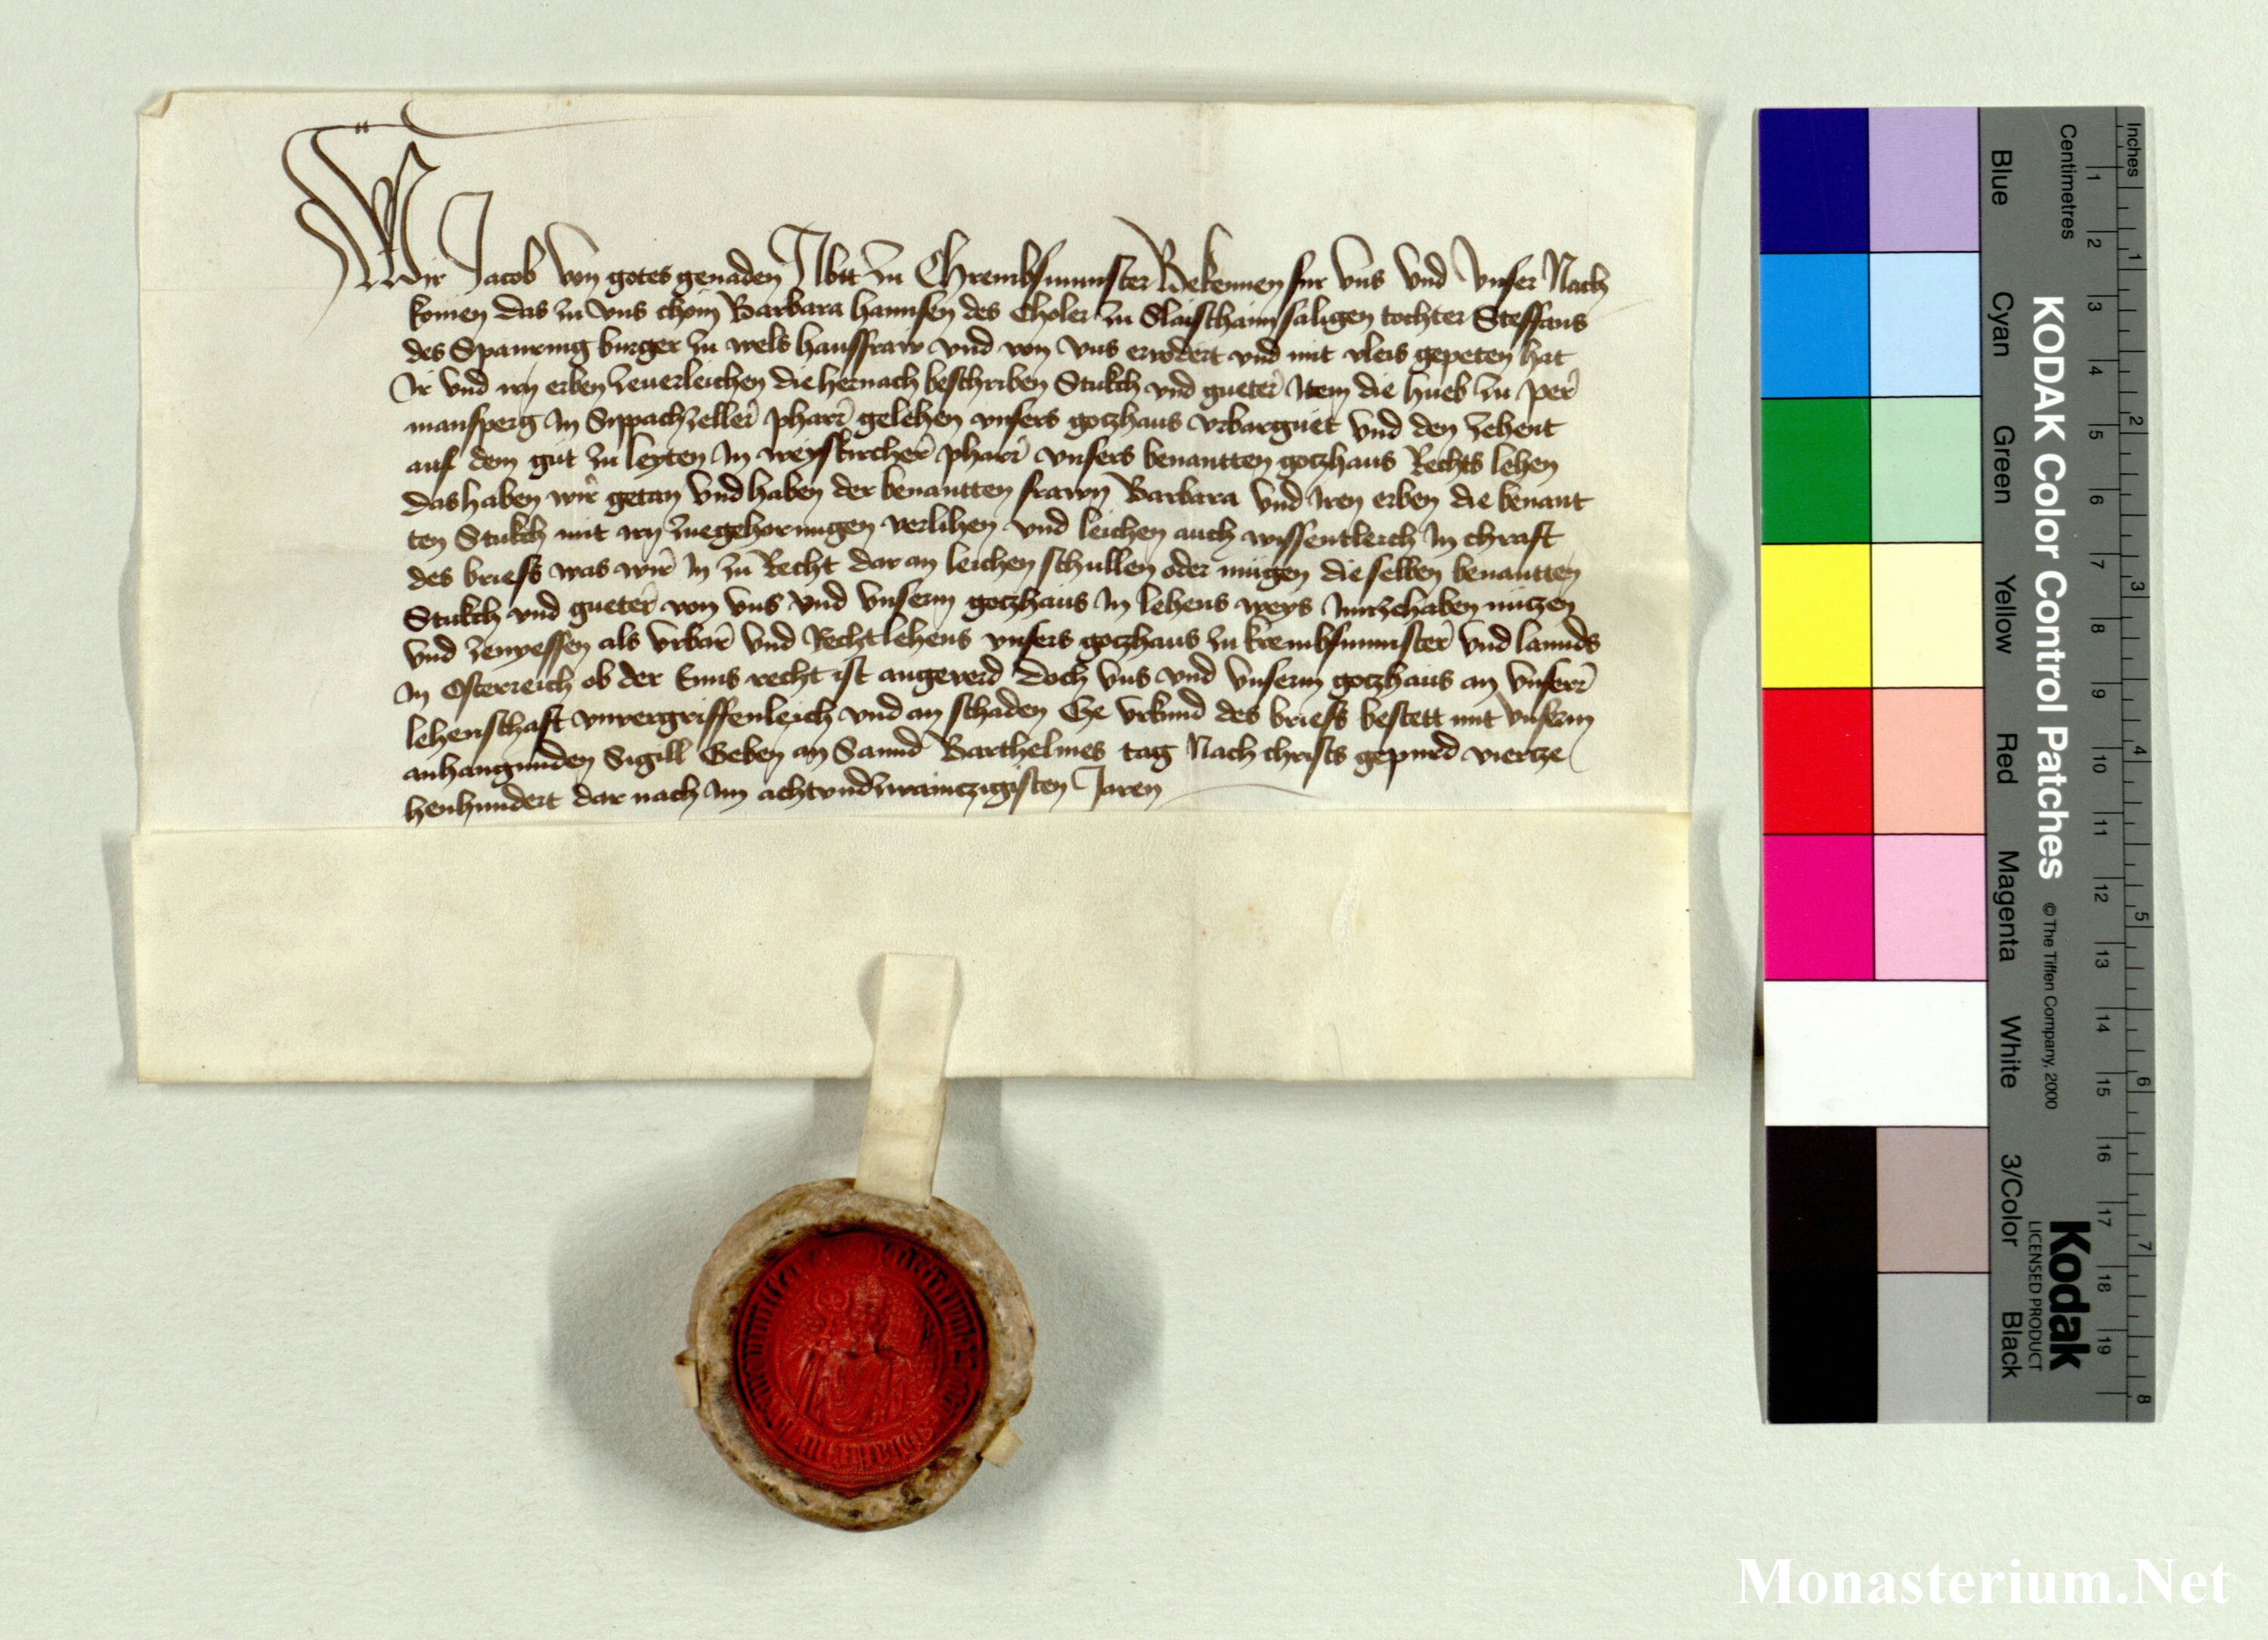 Wir Jacob von gotes genaden Abtt zu Chrembsmunster Bekennen fur vns vnd vnser Nach
komen das zu vns chom Barbara hannsen des Choler zu Slaischaim saligen tochter Steffans
des Spanring burger zu wels hausfraw vnd von vns ervodert vnd mit vleis gepeten hat
Ir vnd irn erben zeuerleichen die hernach beschriben Stukch vnd gueter Item die hueb zu per
mansperg In Sippachzeller pharr gelehen vnsers goczhaus vrbarguet vnd den zehent
auf dem gut zu leyten In weyskircher pharr vnsers benantten goczhaus Rechts lehen
das haben wir getan vnd haben der benantten frawn Barbara vnd Iren erben die benant
ten Stukch mit irn zuegehorungen verlihen vnd leichen auch wissentleich In chraft
des briefs was wir In zu Recht dar an leichen schullen oder mugen die selben benantten
Stukch vnd gueter von vns vnd vnserm goczhaus In lehens weys Innzehaben nuczen
vnd zenyessen als vrbar vnd Rechtlehens vnsers goczhaus zu krembsmunster vnd lannds
In Osterreich ob der Enns recht ist angeverd doch vns vnd vnserm goczhaus an vnserr
lehenschaft vnvergriffenleich vnd an schaden Ze vrkund des briefs bestett mit vnserm
anhangunden Sigill Geben an Sannd Barthelmes tag Nach christs gepurd viertze
henhundert dar nach Im achtvndzwainczigisten Jaren
KODAK Color Control Patches
© The Tiffen Company, 2000
Kodak
LICENSED PRODUCT
Inches
1 2 3 4 5 6 7 8
Centimetres
1 2 3 4 5 6 7 8 9 10 11 12 13 14 15 16 17 18 19
Blue
Cyan
Green
Yellow
Red
Magenta
White
3/Color
Black
Monasterium.Net